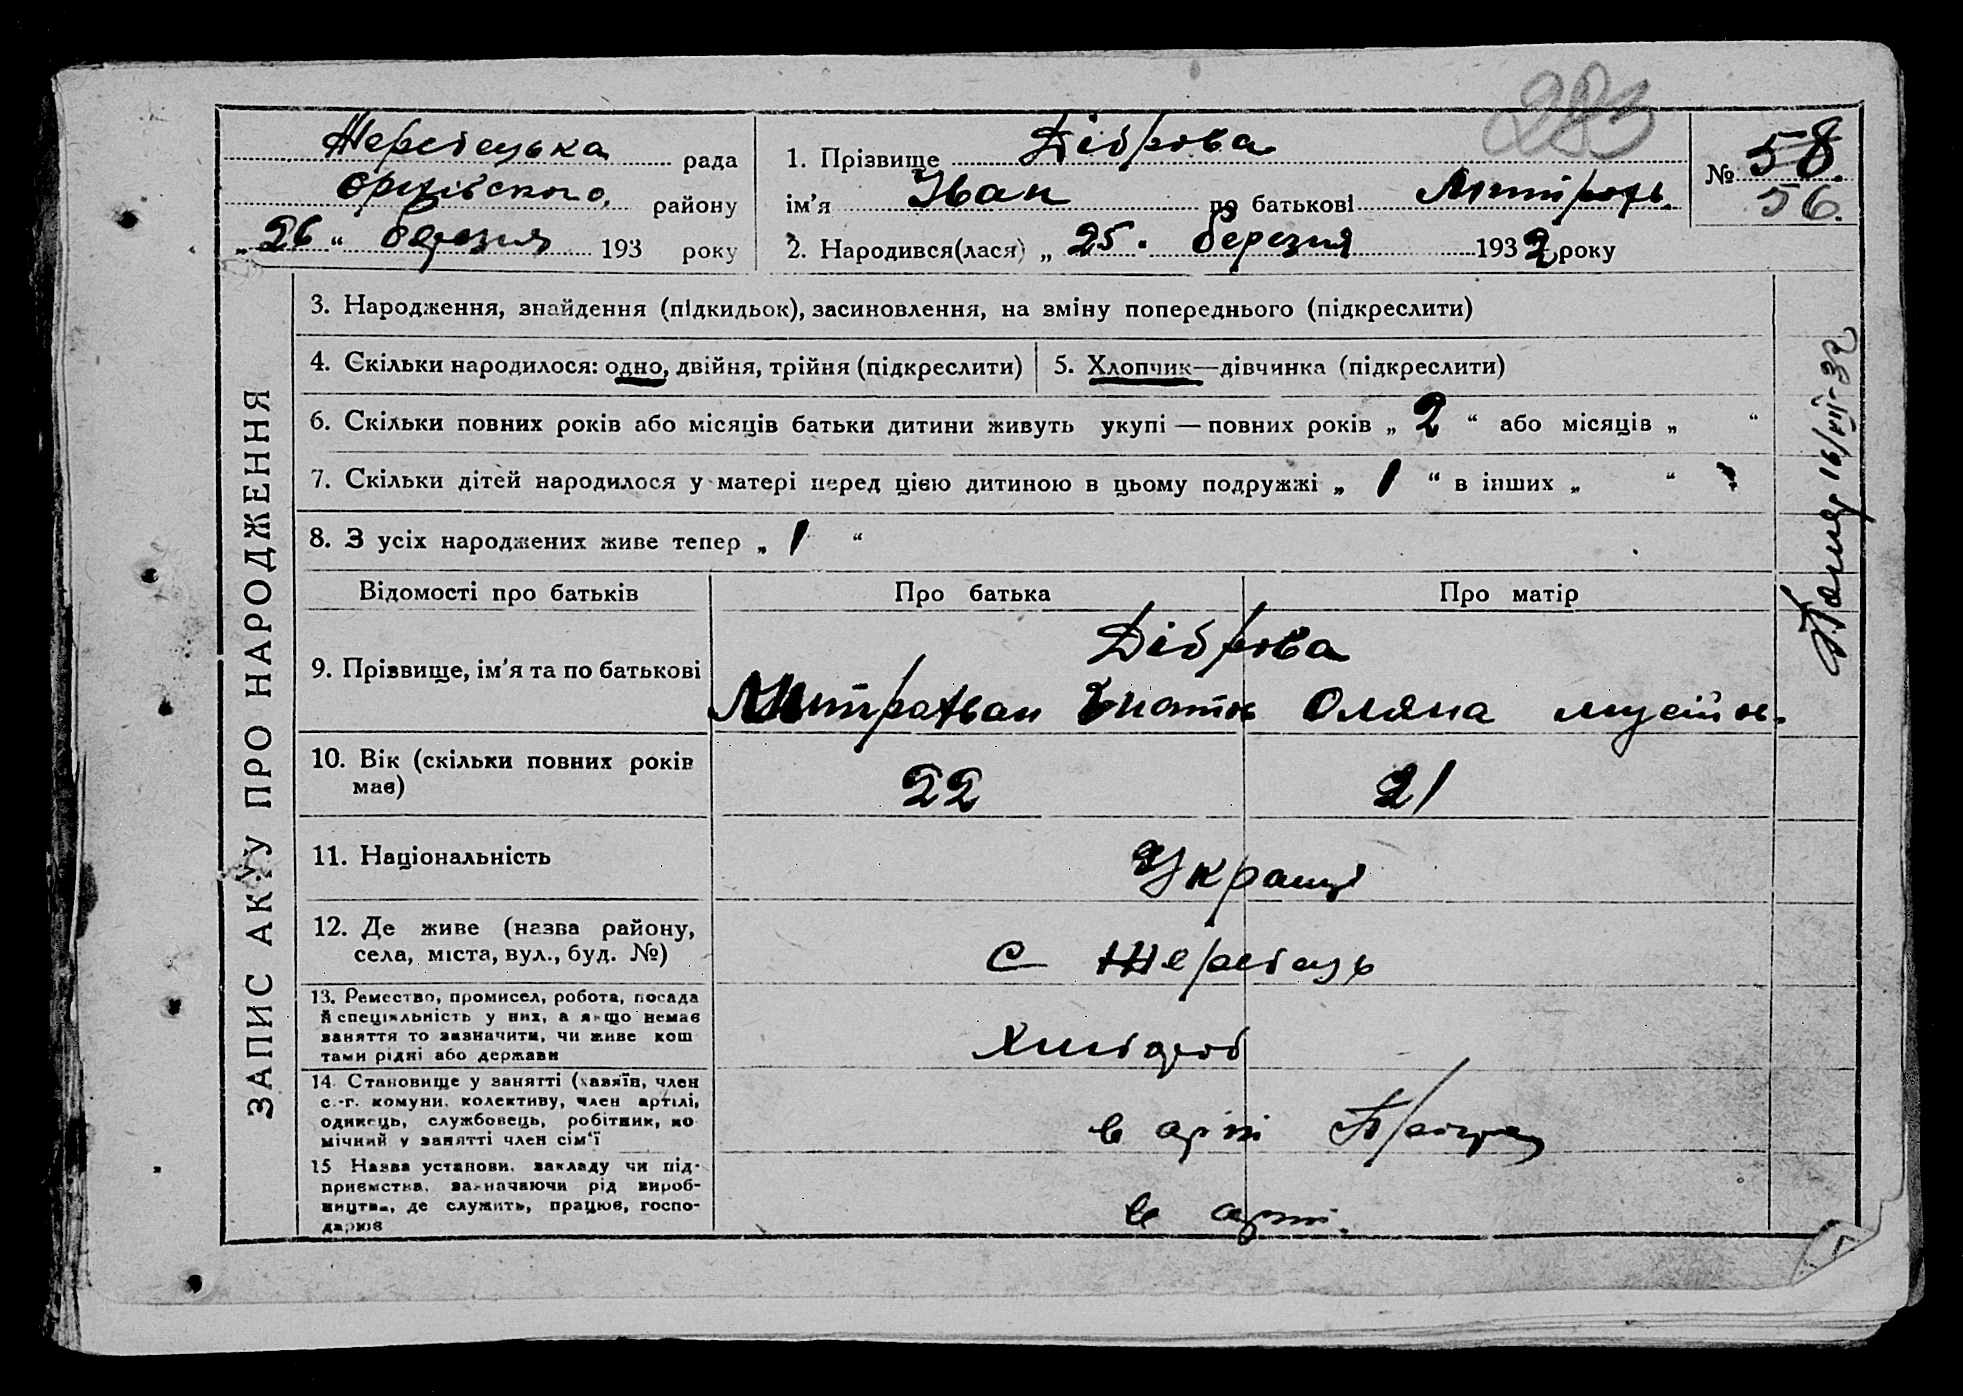 283
Жеребецька рада
Оріхівського району
„26“ березня 193 року
1. Прізвище Діброва
ім'я Іван по батькові Митроф.
2. Народився(лася) „25. березня 1932 року
№ 58.
56.
ЗАПИС АКТУ ПРО НАРОДЖЕННЯ
3. Народження, знайдення (підкидьок), засиновлення, на зміну попереднього (підкреслити)
4. Скільки народилося: одно, двійня, трійня (підкреслити)
5. Хлопчик—дівчинка (підкреслити)
6. Скільки повних років або місяців батьки дитини живуть укупі — повних років „2“ або місяців „ “
7. Скільки дітей народилося у матері перед цією дитиною в цьому подружжі „1“ в інших „ “
8. З усіх народжених живе тепер „1“
Відомості про батьків Про батька Про матір
Діброва
9. Прізвище, ім'я та по батькові Митрофан Гнатов Оляна Мусійов.
10. Вік (скільки повних років
має) 22 21
11. Національність Українці
12. Де живе (назва району,
села, міста, вул., буд. №) с Жеребець
13. Ремество, промисел, робота, посада
й спеціяльність у них, а якщо немає
заняття то зазначити, чи живе кош
тами рідні або держави
Хлібороб
14. Становище у занятті (хазяїн, член
с.-г. комуни, колективу, член артілі,
одинець, службовець, робітник, по
мічний у занятті член сім'ї
в арті
15 Назва установи, закладу чи під-
приємства, зазначаючи рід вироб-
ництва, де служить, працює, госпо-
дарює
в арті.
16/VII-32